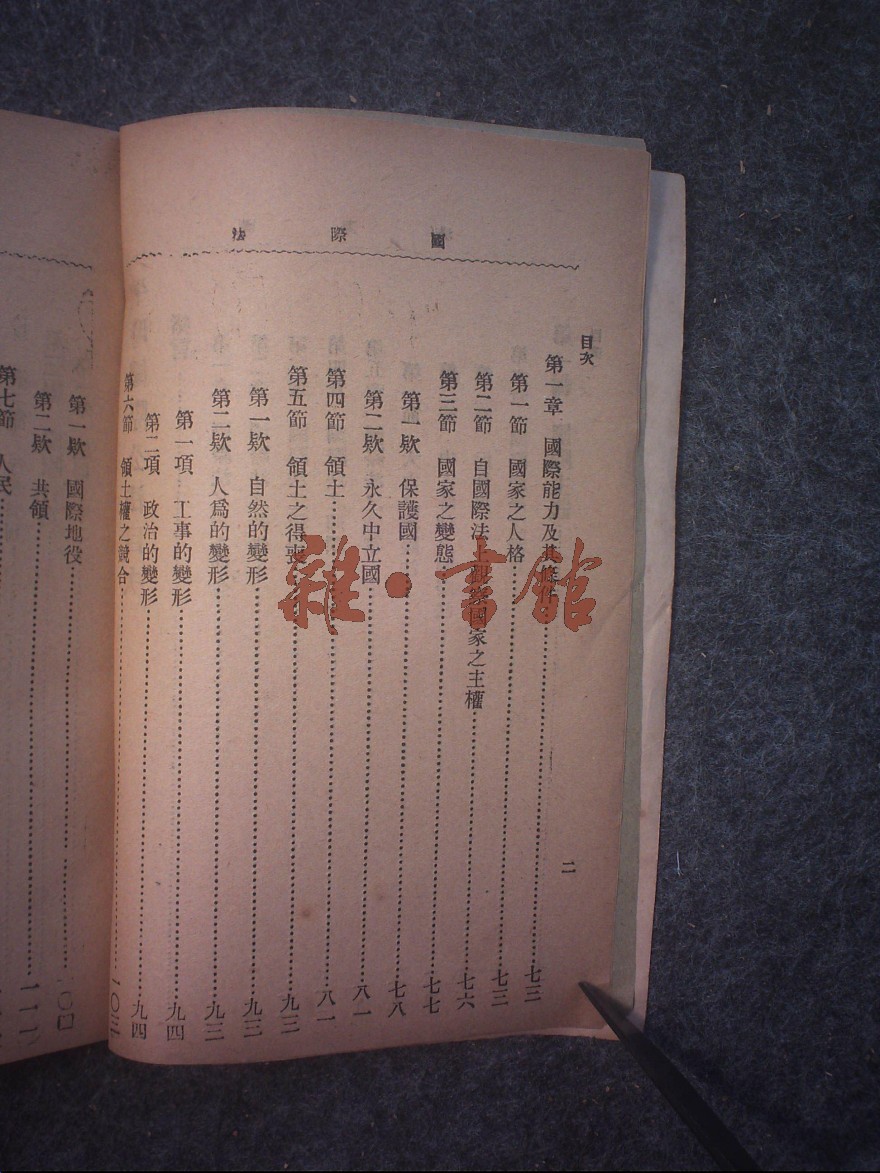 國際法
目次
二
第一章 國際能力及其條件……七三
第一節 國家之人格……七三
第二節 自國際法上觀察國家之主權……七六
第三節 國家之變態……七七
第一欵 保護國……七八
第二欵 永久中立國……八一
第四節 領土……八一
第五節 領土之得喪……九三
第一欵 自然的變形……九三
第二欵 人爲的變形……九三
第一項 工事的變形……九四
第二項 政治的變形……九四
第六節 領土權之競合……一〇三
第一欵 國際地役……一〇四
第二欵 共領……一一一
第七節 人民……
雜·書館